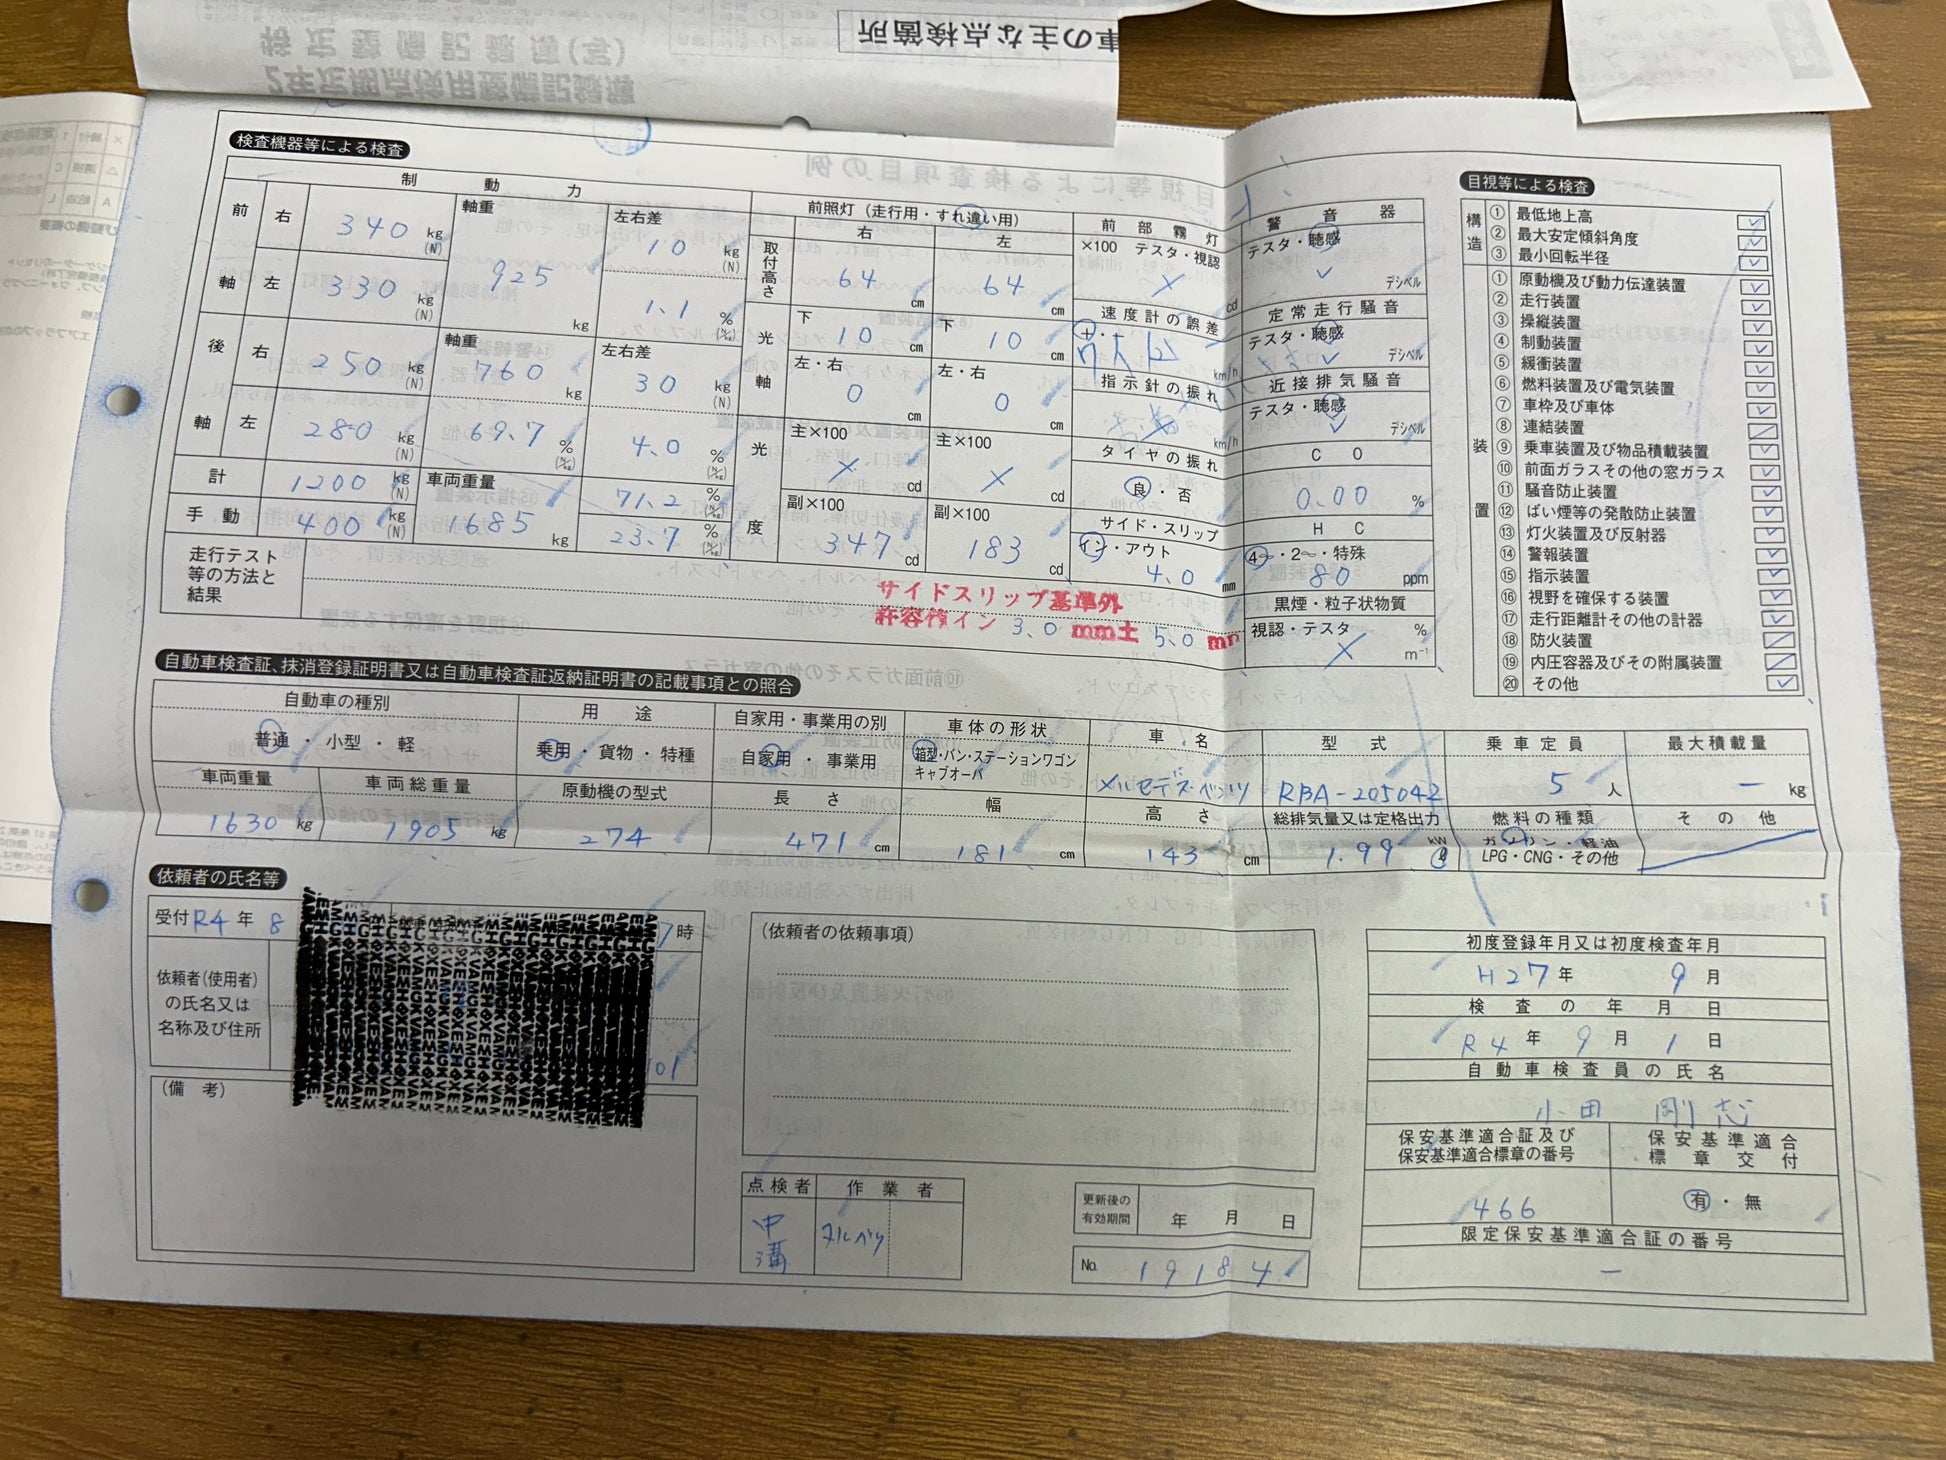 車の主な点検箇所
特定整備記録簿(写)
2年定期点検用整備記録簿
検査機器等による検査
制動力
前軸
右 340 kg (N)
軸重 925 kg
左右差 10 kg (N)
左 330 kg (N)
1.1 % (N/kg)
後軸
右 250 kg (N)
軸重 760 kg
左右差 30 kg (N)
左 280 kg (N)
69.7 % (N/kg)
4.0 % (N/kg)
計 1200 kg (N)
車両重量 1685 kg
71.2 % (N/kg)
手動 400 kg (N)
23.7 % (N/kg)
走行テスト等の方法と結果
前照灯(走行用・すれ違い用)
右 左
取付高さ 64 cm 64 cm
光軸
下 10 cm 下 10 cm
左・右 0 cm 左・右 0 cm
光度
主×100 × cd 主×100 × cd
副×100 347 cd 副×100 183 cd
前部霧灯
×100 テスタ・視認
× cd
速度計の誤差
km/h
指示針の振れ
km/h
タイヤの振れ
良・否
サイド・スリップ
イン・アウト
4.0 mm
サイドスリップ基準外
許容値イン 3.0 mm± 5.0 mm
警音器
テスタ・聴感
✓ デシベル
定常走行騒音
テスタ・聴感
✓ デシベル
近接排気騒音
テスタ・聴感
✓ デシベル
CO
0.00 %
HC
4〜・2〜・特殊
80 ppm
黒煙・粒子状物質
視認・テスタ %
× m⁻¹
目視等による検査
構造
① 最低地上高 ✓
② 最大安定傾斜角度 ✓
③ 最小回転半径 ✓
装置
① 原動機及び動力伝達装置 ✓
② 走行装置 ✓
③ 操縦装置 ✓
④ 制動装置 ✓
⑤ 緩衝装置 ✓
⑥ 燃料装置及び電気装置 ✓
⑦ 車枠及び車体 ✓
⑧ 連結装置 ／
⑨ 乗車装置及び物品積載装置 ✓
⑩ 前面ガラスその他の窓ガラス ✓
⑪ 騒音防止装置 ✓
⑫ ばい煙等の発散防止装置 ✓
⑬ 灯火装置及び反射器 ✓
⑭ 警報装置 ✓
⑮ 指示装置 ✓
⑯ 視野を確保する装置 ✓
⑰ 走行距離計その他の計器 ✓
⑱ 防火装置 ／
⑲ 内圧容器及びその附属装置 ／
⑳ その他 ✓
自動車検査証、抹消登録証明書又は自動車検査証返納証明書の記載事項との照合
自動車の種別
普通・小型・軽
用途
乗用・貨物・特種
自家用・事業用の別
自家用・事業用
車体の形状
箱型・バン・ステーションワゴン
キャブオーバ
車名
メルセデス・ベンツ
型式
RBA-205042
乗車定員
5 人
最大積載量
－ kg
車両重量
1630 kg
車両総重量
1905 kg
原動機の型式
274
長さ
471 cm
幅
181 cm
高さ
143 cm
総排気量又は定格出力
1.99 kW ℓ
燃料の種類
ガソリン・軽油
LPG・CNG・その他
その他
依頼者の氏名等
受付 R4 年 8
7 時
依頼者(使用者)
の氏名又は
名称及び住所
101
(備考)
(依頼者の依頼事項)
点検者 作業者
中溝
更新後の有効期間 年 月 日
No. 19184
初度登録年月又は初度検査年月
H27 年 9 月
検査の年月日
R4 年 9 月 1 日
自動車検査員の氏名
小田 剛志
保安基準適合証及び
保安基準適合標章の番号
466
保安基準適合
標章交付
有・無
限定保安基準適合証の番号
－